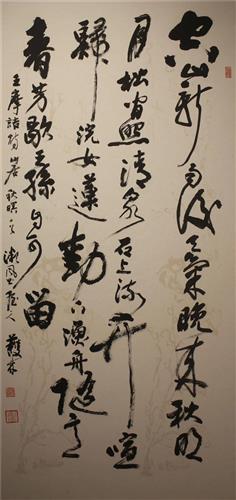 空山新雨後天氣晚來秋明
月松間照清泉石上流竹喧
歸浣女蓮動下漁舟隨意
春芳歇王孫自可留
王摩詰詩山居秋暝